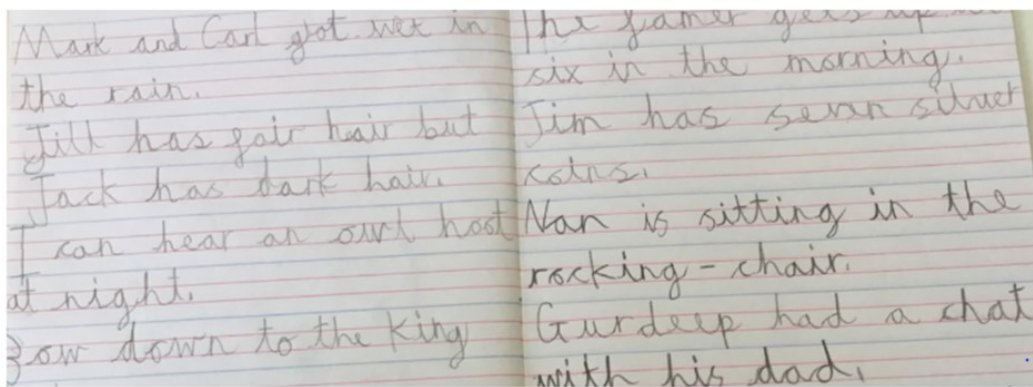 Mark and Carl got wet in
the rain.
Jill has fair hair but
Jack has dark hair.
I can hear an owl hoot
at night.
Bow down to the King
The famer gets up
six in the morning.
Jim has sevsn silver
coins.
Nan is sitting in the
rocking-chair.
Gurdeep had a chat
with his dad.